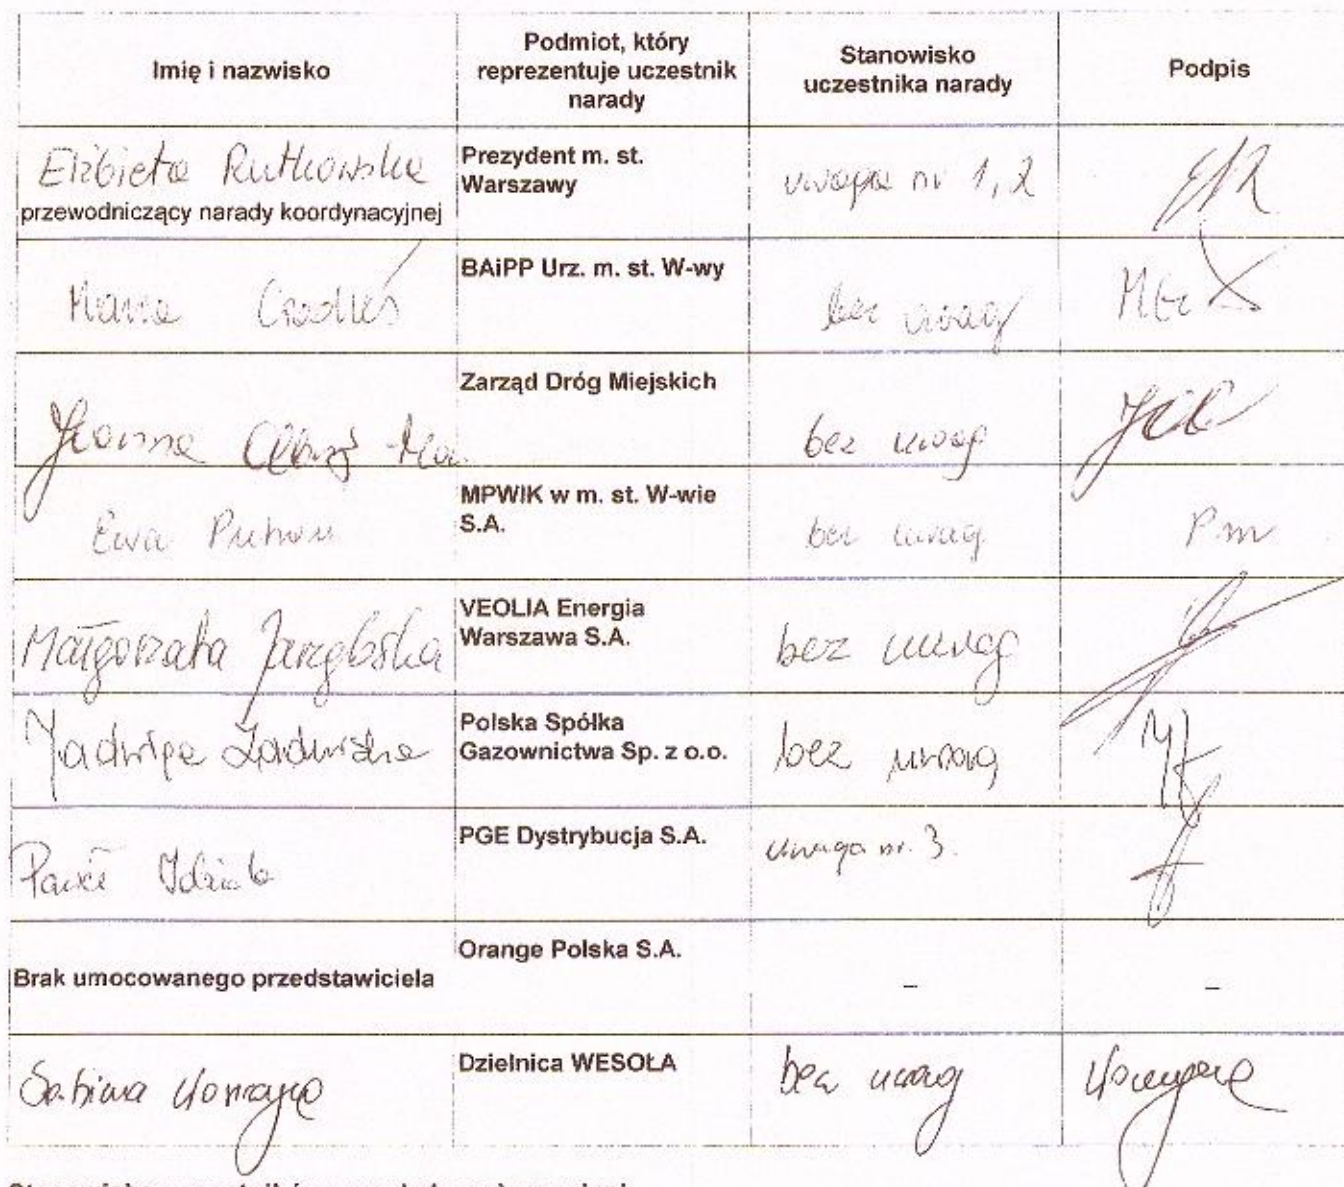 Imię i nazwisko
Podmiot, który
reprezentuje uczestnik
narady
Stanowisko
uczestnika narady
Podpis
Elżbieta Rutkowska
przewodniczący narady koordynacyjnej
Prezydent m. st.
Warszawy
uwaga nr 1, 2
BAiPP Urz. m. st. W-wy
bez uwag
Joanna
Zarząd Dróg Miejskich
bez uwag
Ewa
MPWIK w m. st. W-wie
S.A.
bez uwag
Małgorzata
VEOLIA Energia
Warszawa S.A.
bez uwag
Jadwiga
Polska Spółka
Gazownictwa Sp. z o.o.
bez uwag
Paweł
PGE Dystrybucja S.A.
uwaga nr. 3.
Brak umocowanego przedstawiciela
Orange Polska S.A.
–
–
Sabina
Dzielnica WESOŁA
bez uwag